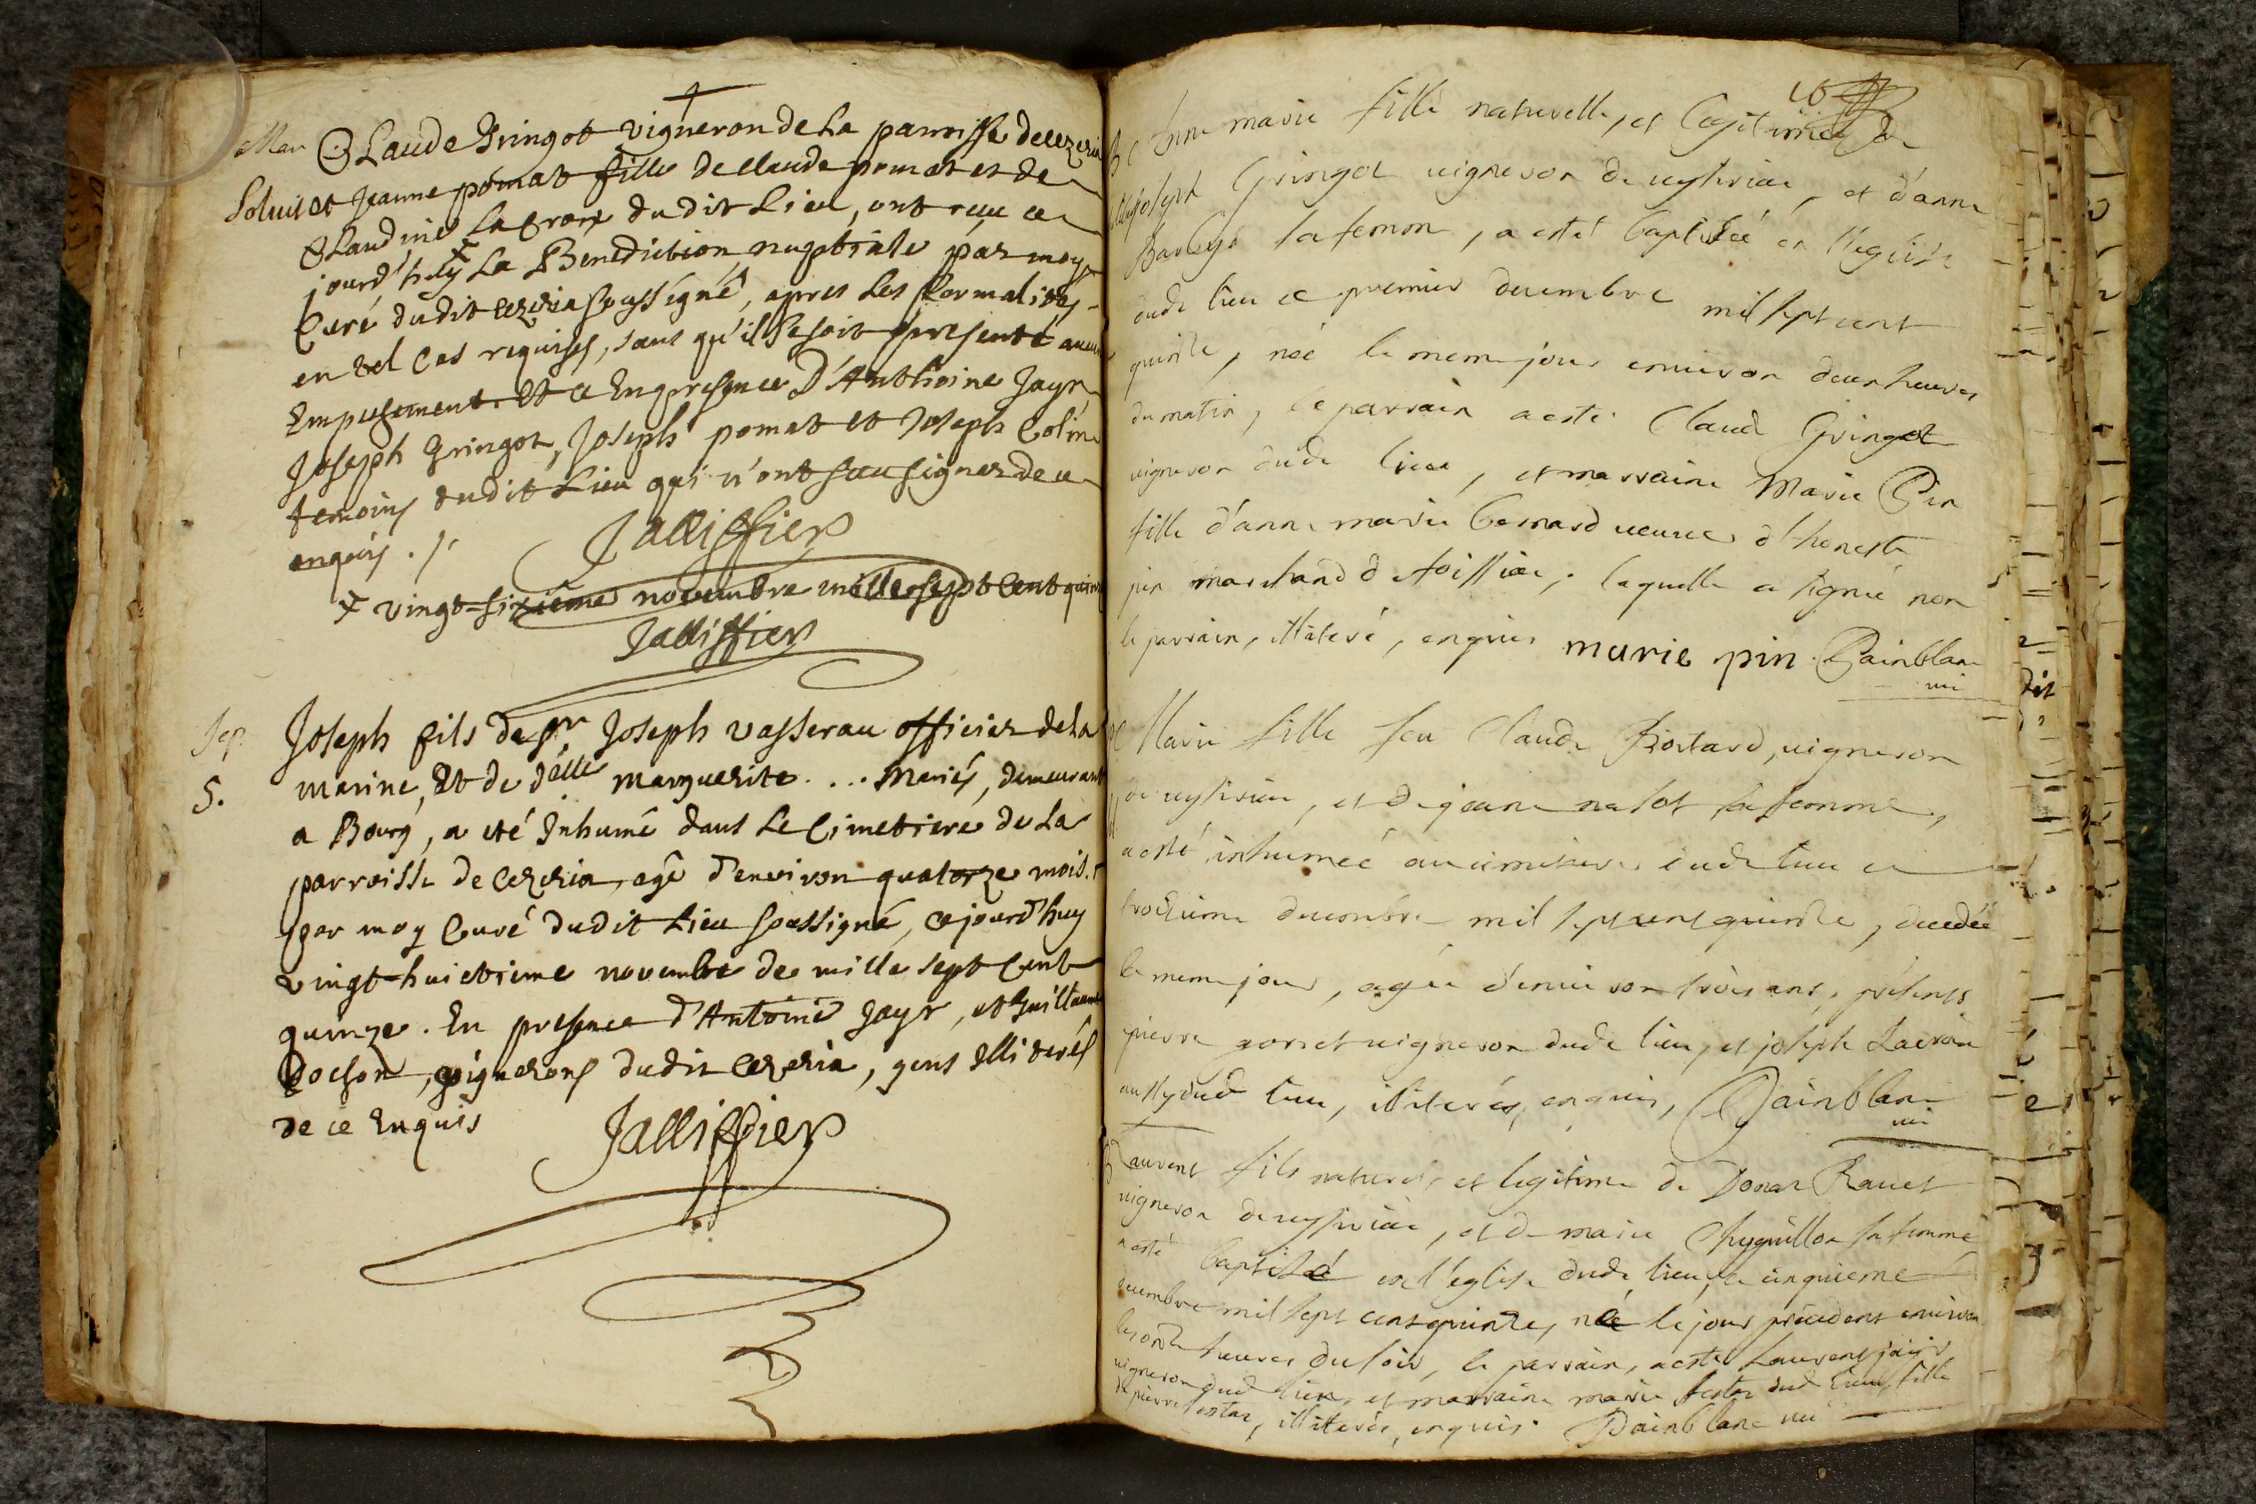 Mar Claude Gringot vigneron de La parroisse de cezeria
Soluit et Jeanne pomat fille de claude pomat et de
Claudine La Croix du dit Lieu, ont reçu ce
jourd'huy + La Benediction nuptiale par moy
Curé dudit cezeria soussigné, apres Les formalités
en tel Cas requises, sans qu'il se soit presenté aucun
Empechement. Et ce En presence D'Anthoine Jayr,
Joseph Gringot, Joseph pomat et Joseph Colin
temoins dudit Lieu qui n'ont sceu signer de ce
enquis ./.
Jalliffier
+ vingt-sixième novembre mille sept Cent quinze
Jalliffier
Sep. Joseph fils de sr Joseph vasserau officier de la
5. marine, Et de delle marguerite ... Mariés, demeurant
a Bourg, a eté Inhumé dans Le Cimetiere de La
parroisse de cezeria, agé d'environ quatorze mois.
par moy Curé dudit Lieu soussigné, cejourd'huy
vingt-huictieme novembre de mille sept Cent
quinze. En presence d'Antoine Jayr, et Guillaume
vignerons dudit Cezeria, gens Illiterés
de ce Enquis
Jalliffier
16
B Anne marie fille naturelle, et legitime de
joseph Gringot vigneron de ceyseriat, et d'anne
sa femme, a esté baptisée en l'eglise
dudt lieu ce premier decembre mil sept cent
quinze, née le meme jour environ deux heures
du matin, le parrain a esté Claude Gringot
vigneron dudt lieu, et marraine Marie Pin
fille d'anne marie bernard veuve d'honeste
pin marchand d Toissiat, laquelle a signé non
le parrain, illiteré, enquis marie pin Painblanc
vic
Marie fille feu Claude vigneron
de ceyseriat, et de jeanne sa femme,
a esté inhumée au cimetiere dudt lieu ce
troisieme decembre mil sept cent quinze, decedée
le meme jour, agée d'environ trois ans, présents
pierre vigneron dudt lieu, et joseph Lacroix
aussy dudt lieu, illiterés, enquis, Painblanc
vic
B Laurent fils naturel, et legitime de Donat Rauet
vigneron de ceyseriat, et de marie sa femme
a esté baptisé en l'eglise dudt lieu, ce cinquieme
decembre mil sept cent quinze, né le jour précédent environ
les onze heures du soir, le parrain, a esté Laurent jair
vigneron dudt lieu, et marraine marie dudt lieu, fille
de pierre illiterés, enquis. Painblanc vic